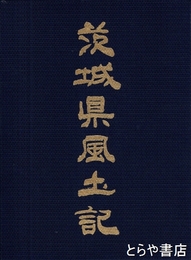 茨城県風土記
とらや書店